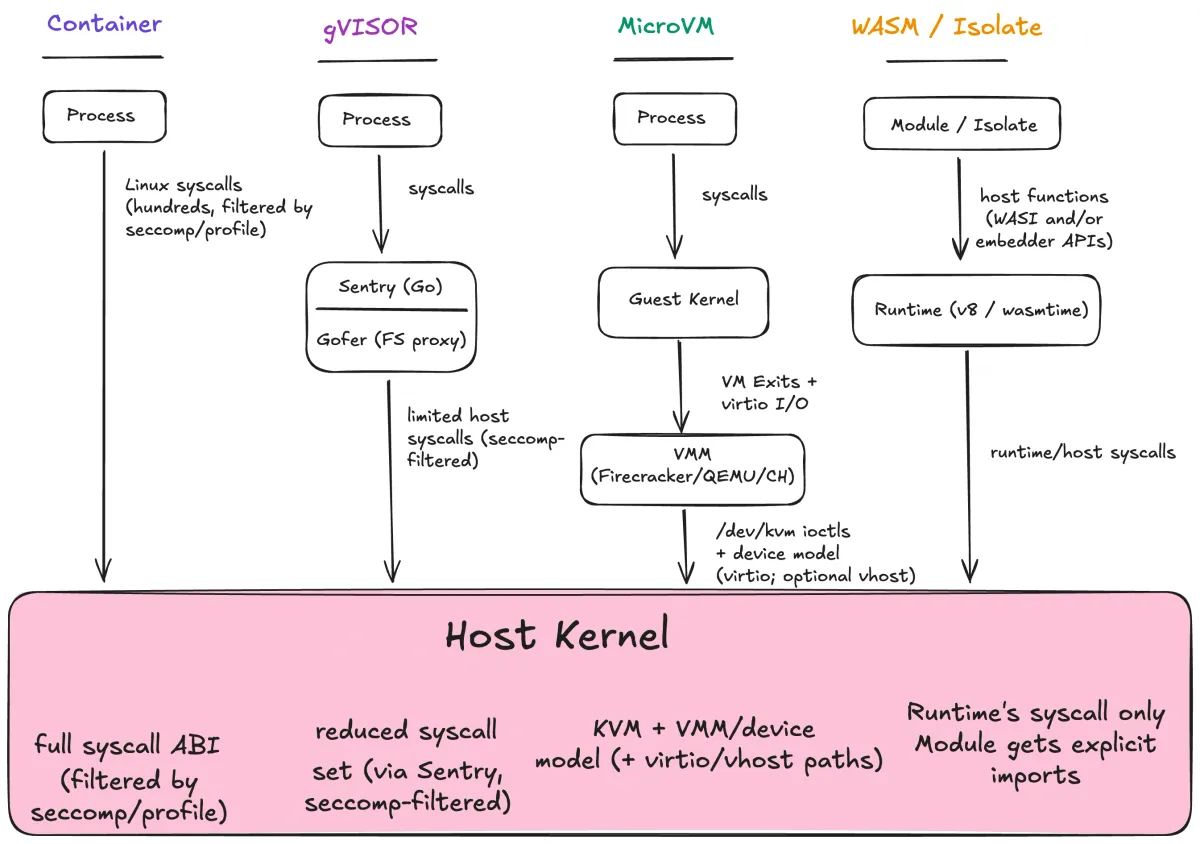 Container
Process
Linux syscalls
(hundreds, filtered by
seccomp/profile)
gVISOR
Process
syscalls
Sentry (Go)
Gofer (FS proxy)
limited host
syscalls (seccomp-
filtered)
MicroVM
Process
syscalls
Guest Kernel
VM Exits +
virtio I/O
VMM
(Firecracker/QEMU/CH)
/dev/kvm ioctls
+ device model
(virtio; optional vhost)
WASM / Isolate
Module / Isolate
host functions
(WASI and/or
embedder APIs)
Runtime (v8 / wasmtime)
runtime/host syscalls
Host Kernel
full syscall ABI
(filtered by
seccomp/profile)
reduced syscall
set (via Sentry,
seccomp-filtered)
KVM + VMM/device
model (+ virtio/vhost paths)
Runtime's syscall only
Module gets explicit
imports